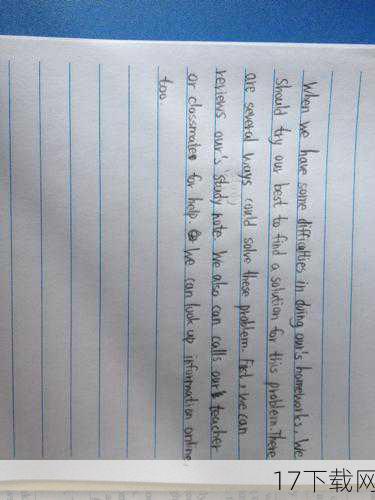 When we have some difficulties in doing our's homeworks, We
should try our best to find a solution for this problem. There
are several ways could solve these problem. First, we can
reviews our's "study note. We also can calls our teacher
or classmates for help. We can look up information online
too
17下载网